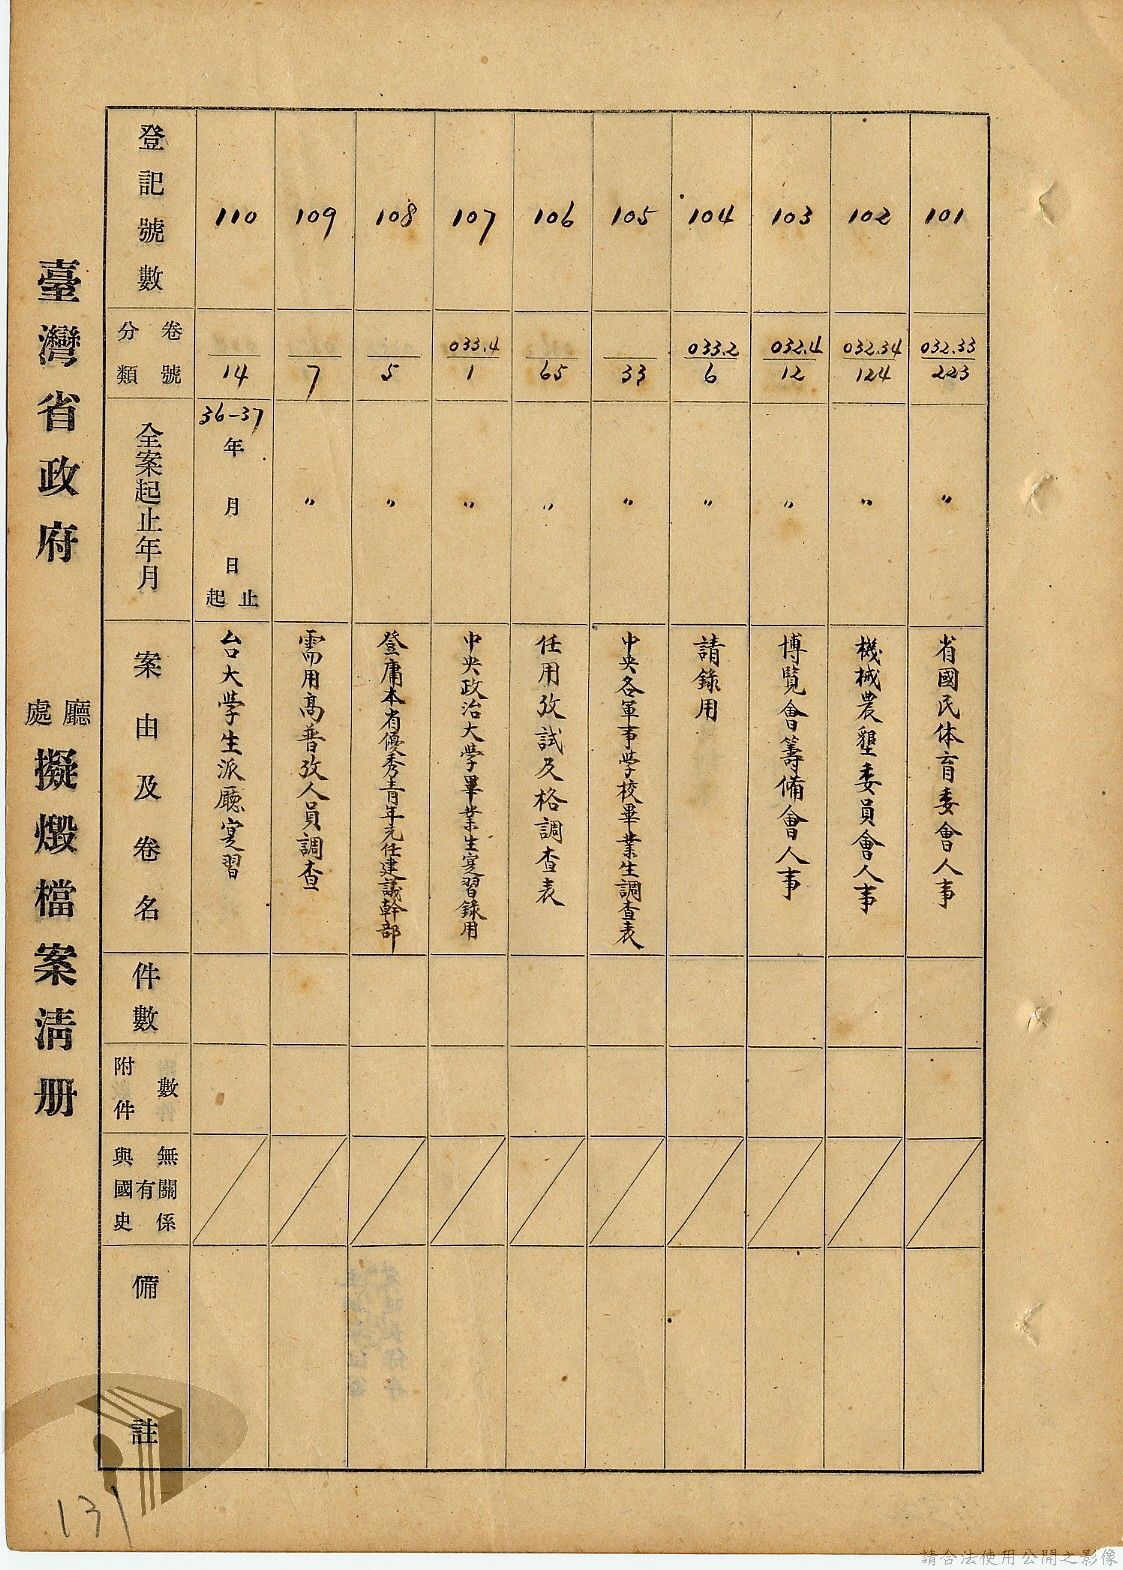 臺灣省政府 廳處 擬燬檔案清册
登記號數
110
109
108
107
106
105
104
103
102
101
分類 卷號
14
7
5
033.4 1
65
33
033.2 6
032.4 12
032.34 124
032.33 223
全案起止年月
36-37年 月 日 起 止
〃
〃
〃
〃
〃
〃
〃
〃
〃
案由及卷名
台大學生派廳寔習
需用高普攷人員調查
登庸本省優秀青年充任建議幹部
中央政治大學畢業生寔習錄用
任用攷試及格調查表
中央各軍事学校畢業生調查表
請錄用
博覧會籌備會人事
機械農墾委員會人事
省國民体育委會人事
件數
附件數
與國史有無關係
備註
131
請合法使用公開之影像